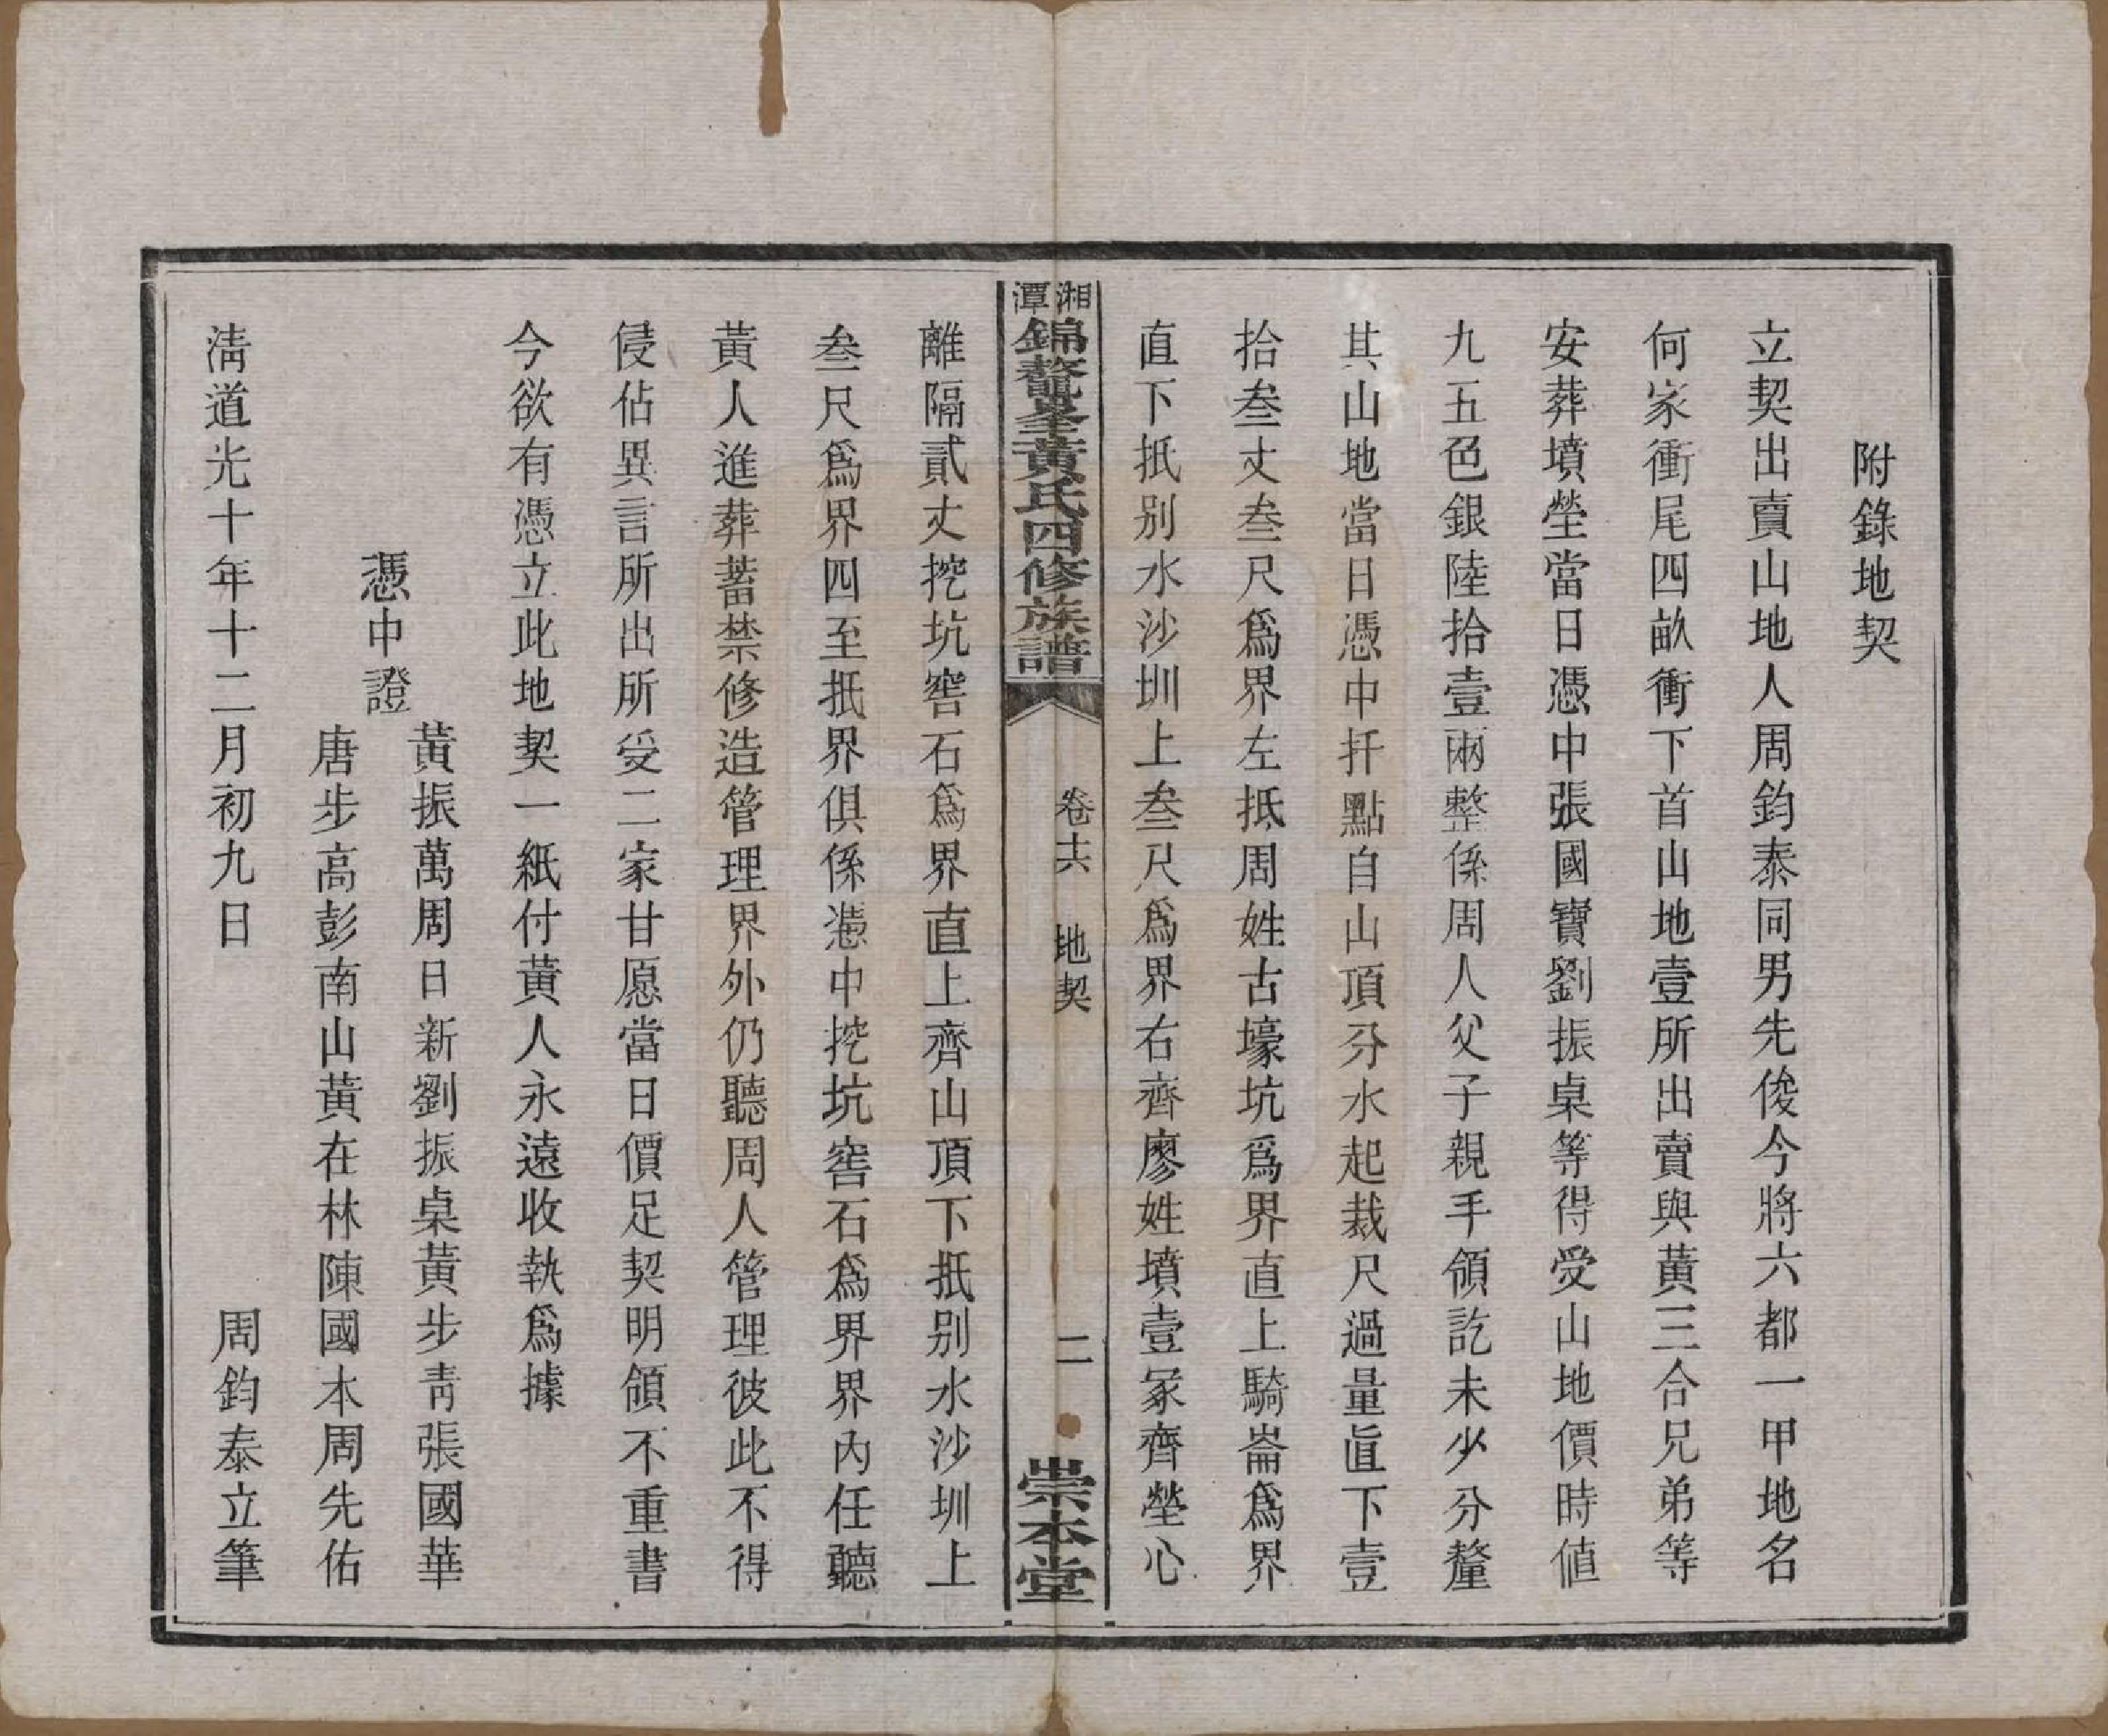 附錄地契
立契出賣山地人周鈞泰同男先俊今將六都一甲地名
何家衝尾四畝衝下首山地壹所出賣與黃三合兄弟等
安葬墳塋當日憑中張國寶劉振桌等得受山地價時値
九五色銀陸拾壹兩整係周人父子親手領訖未少分釐
其山地當日憑中扦點自山頂分水起裁尺過量直下壹
拾叁丈叁尺爲界左抵周姓古壕坑爲界直上騎崙爲界
直下抵别水沙圳上叁尺爲界右齊廖姓墳壹冢齊塋心
湘潭錦鼇峯黃氏四修族譜
卷十六 地契
二
崇本堂
離隔貳丈挖坑窖石爲界直上齊山頂下抵别水沙圳上
叁尺爲界四至抵界俱係憑中挖坑窖石爲界界內任聽
黃人進葬蓄禁修造管理界外仍聽周人管理彼此不得
侵佔異言所出所受二家甘愿當日價足契明領不重書
今欲有憑立此地契一紙付黃人永遠收執爲據
憑中證
黃振萬周日新劉振桌黃步靑張國華
唐步高彭南山黃在林陳國本周先佑
淸道光十年十二月初九日 周鈞泰立筆